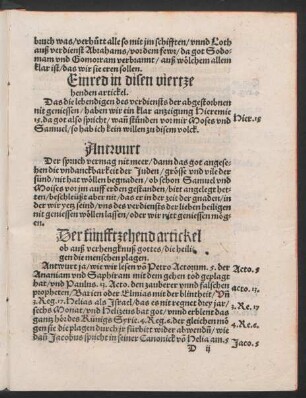 bruch was/verhütt alle so mit jm schifften/vnnd Loth
auß verdienst Abrahams/vor dem fewr/da got Sodo-
mam vnd Gomorram verbrannt/auß wölchem allem
klar ist/das wir sie eren sollen.
Einred in disen viertze
henden artickel.
Das die lebendigen des verdiensts der abgestorbnen
nit geniessen/haben wir ein klar anzeigung Hieremie
15. da got also spricht/wan stünden vor mir Moses vnd
Samuel/so hab ich kein willen zu disem volck.
Hier. 15
Antwurt
Der spruch vermag nit meer/dann das got angese-
hen die vndanckbarkeit der Juden/grösse vnd vile der
sünd/nit hat wöllen begnaden/ob schon Samuel vnd
Moises vor jm auff erden gestanden/bitt angelegt het-
ten/beschleüßt aber nit/das er in der zeit der gnaden/in
der wir yetz seyn/vns des verdiensts der lieben heiligen
nit geniessen wöllen lassen/oder wir nitt geniessen mö-
gen.
Der fünfftzehend artickel
ob auß verhengknuß gottes/die heili-
gen die menschen plagen.
Antwurt ja/wie wir lesen võ Petro Actorum. 5. der
Ananiam vnd Saphiram mit dem gehen tod geplagt
hat/vnd Paulus. 13. Acto. den zauberer vnnd falschen
propheten/Barieu oder Elimas mit der blintheit/Vñ
3. Reg. 17. Helias als Israel/das es nit regnet drey jar/
sechs Monat/vnd Helizeus bat got/vnnd erblent das
gantz hör des Künigs Syrie. 4. Reg. 6. der gleichen mö
gen sie die plagen durch jr fürbitt wider abwendẽ/wie
dañ Jacobus spricht in seiner Canonick võ Helia am. 5
Acto. 5
acto. 13.
3. Re. 17
4. Re. 6.
Jaco. 5
D ij